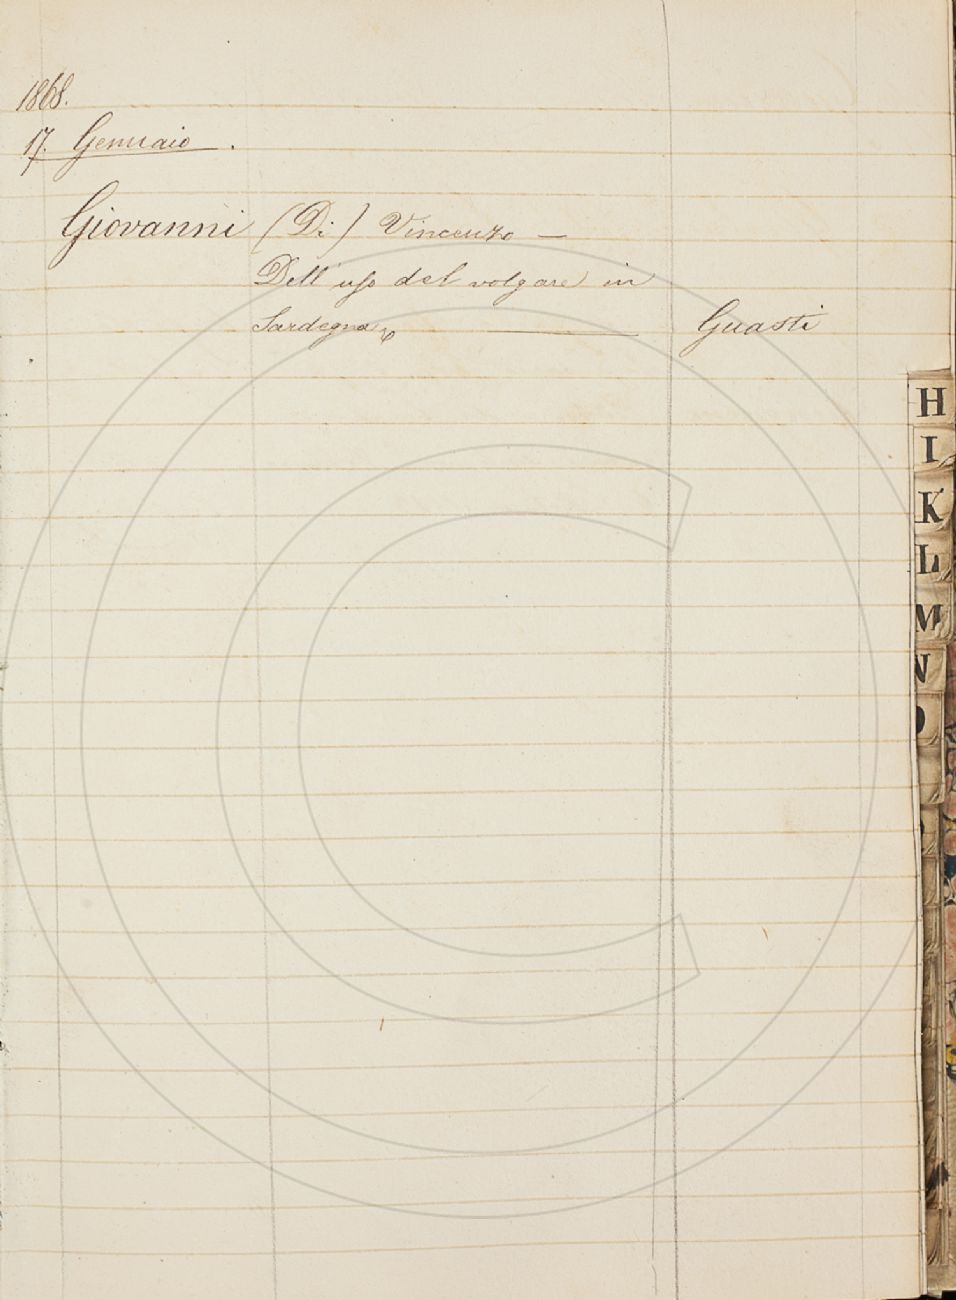 1868.
17. Gennaio.
Giovanni (Di) Vincenzo —
Dell'uso del volgare in
Sardegna — Guasti
H
I
K
L
M
N
O